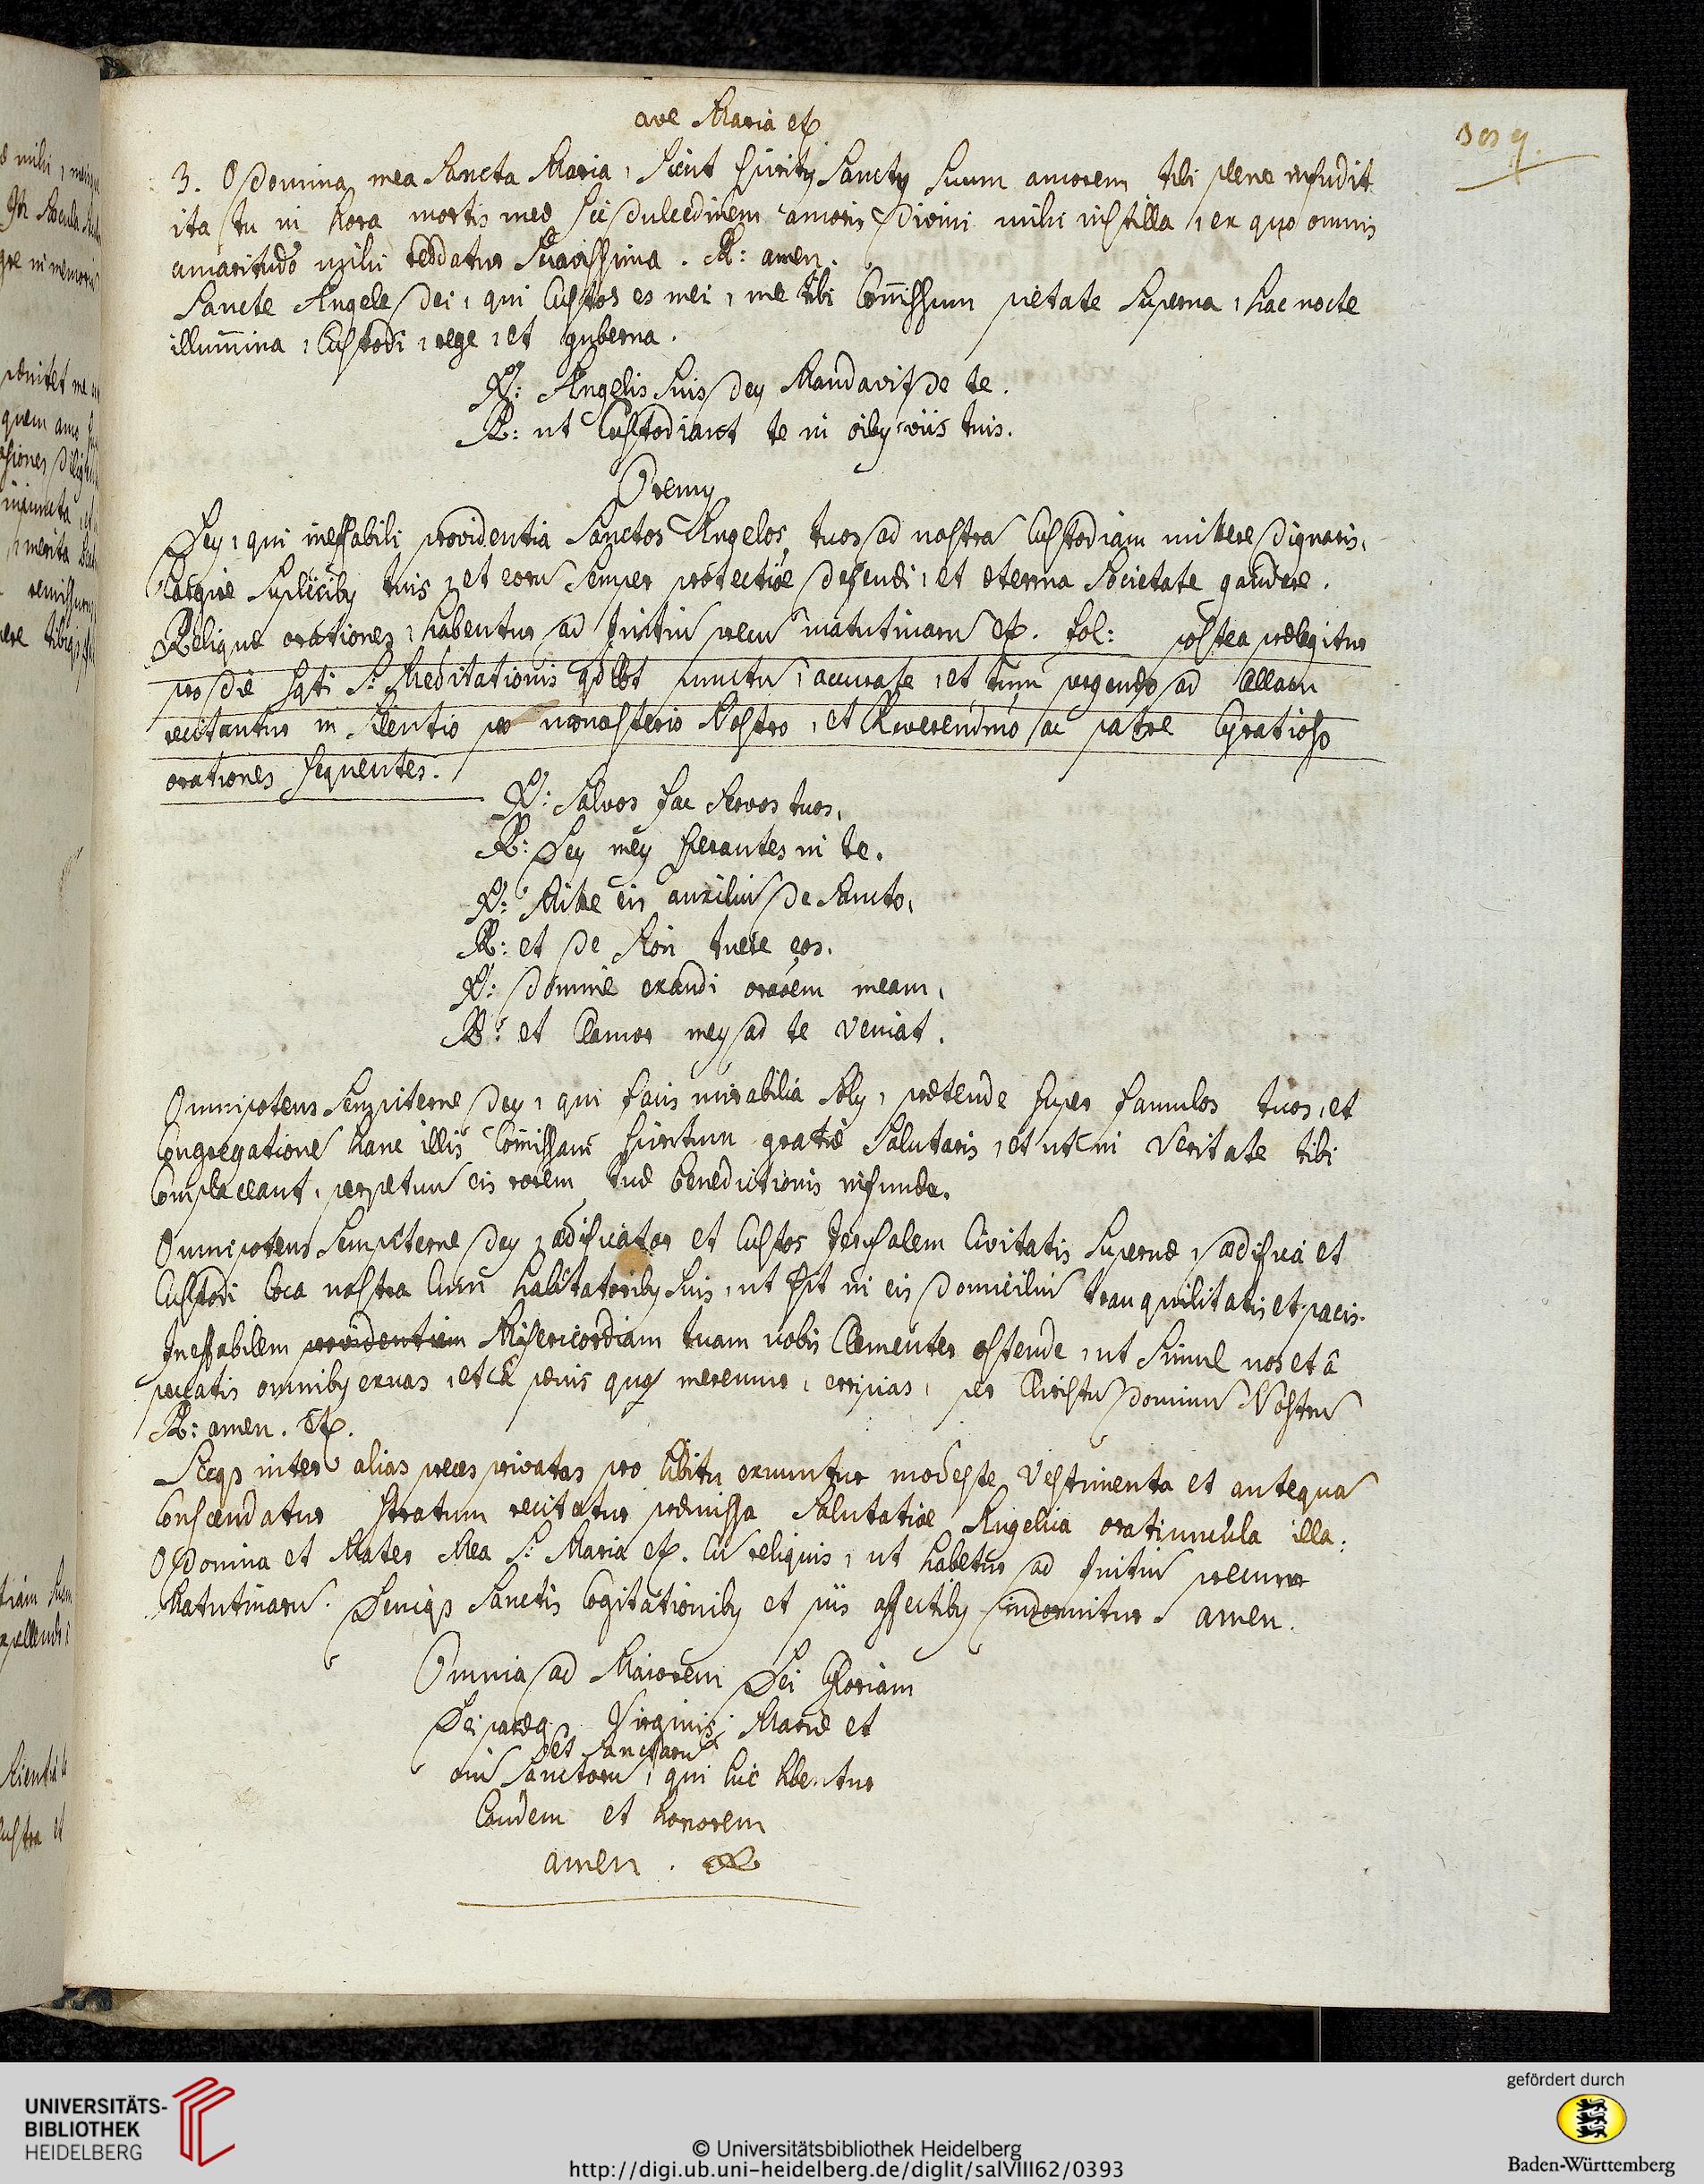 ave Maria etc
3. O Domina mea Sancta Maria, Sicut Spiritus Sanctus Suum amorem tibi plene infudit
ita tu in hora mortis meæ sic dulcedinem amoris Divini mihi instilla, ex quo omnis
amaritudo mihi reddatur Suavissima. R: amen.
Sancte Angele Dei, qui Custos es mei, me tibi Com̄issum pietate Superna, hac nocte
illumina, Custodi, rege, et guberna.
V: Angelis Suis Deus Mandavit de te.
R: ut Custodiant te in oi͞bus viis tuis.
Oremus
Deus, qui ineffabili providentia Sanctos Angelos tuos ad nostrā Custodiam mittere Dignaris,
Largire Suplicibus tuis, et eorū Semper protectiōe defendi, et æterna Societate gaudere.
Reliquæ orationes, habentur ad Initiū precū matutinarū etc. fol: postea prælegitur
pro die Sqti S: Meditationis qdlbt punctū, accurate, et tum pergendo ad Cellam
recitantur in Silentio pro monasterio Nostro, et Reverendmo ac patre Gratioso
orationes Sequentes.
V: Salvos fac Servos tuos,
R: Deus meus Sperantes in te.
V: Mitte eis auxiliū De Sancto,
R: et De Sion tuere eos.
V: Domine exaudi orāoem meam,
R: et Clamor meus ad te veniat.
Omnipotens Sempiterne Deus, qui facis mirabilia Solus, prætende Super famulos tuos, et
Congregationē hanc illis Com̄issam Spiritum gratiæ Salutaris, et ut in Veritate tibi
Complaceant, perpetuū eis rorem tuæ benedictionis infunde.
Omnipotens Sempiterne Deus, ædificator et Custos Jerusalem Civitatis Supernæ, ædifica et
Custodi loca nostra Cum habitatoribus Suis, ut sit in eis Domiciliū tranquilitatis et pacis.
Ineffabilem providentiam Misericordiam tuam nobis Clementer ostende, ut Simul nos et â
peccatis omnibus exuas, et â pœnis quas meremur, eripias, per Christū Dominū Nostrū
R: amen. etc.
Sicqs inter alias preces privatas pro libitu exuuntur modeste Vestimenta et antequā
Conscendatur Stratum recitatur præmissa Salutatiōe Angelica oratiuncula illa:
O Domina et Mater Mea S: Maria etc. Cū reliquis, ut habetur ad Initiū precum
Matutinarū. Deniqs Sanctis Cogitationibus et piis affectibus indormitur. amen.
Omnia ad Maiorem Dei Gloriam
Deiparæq Virginis Mariæ et
et Sanctarū
oiū Sanctorū, qui hic hbentur
Laudem et honorem
amen.
UNIVERSITÄTS-
BIBLIOTHEK
HEIDELBERG
© Universitätsbibliothek Heidelberg
http://digi.ub.uni-heidelberg.de/diglit/salVIII62/0393
gefördert durch
Baden-Württemberg